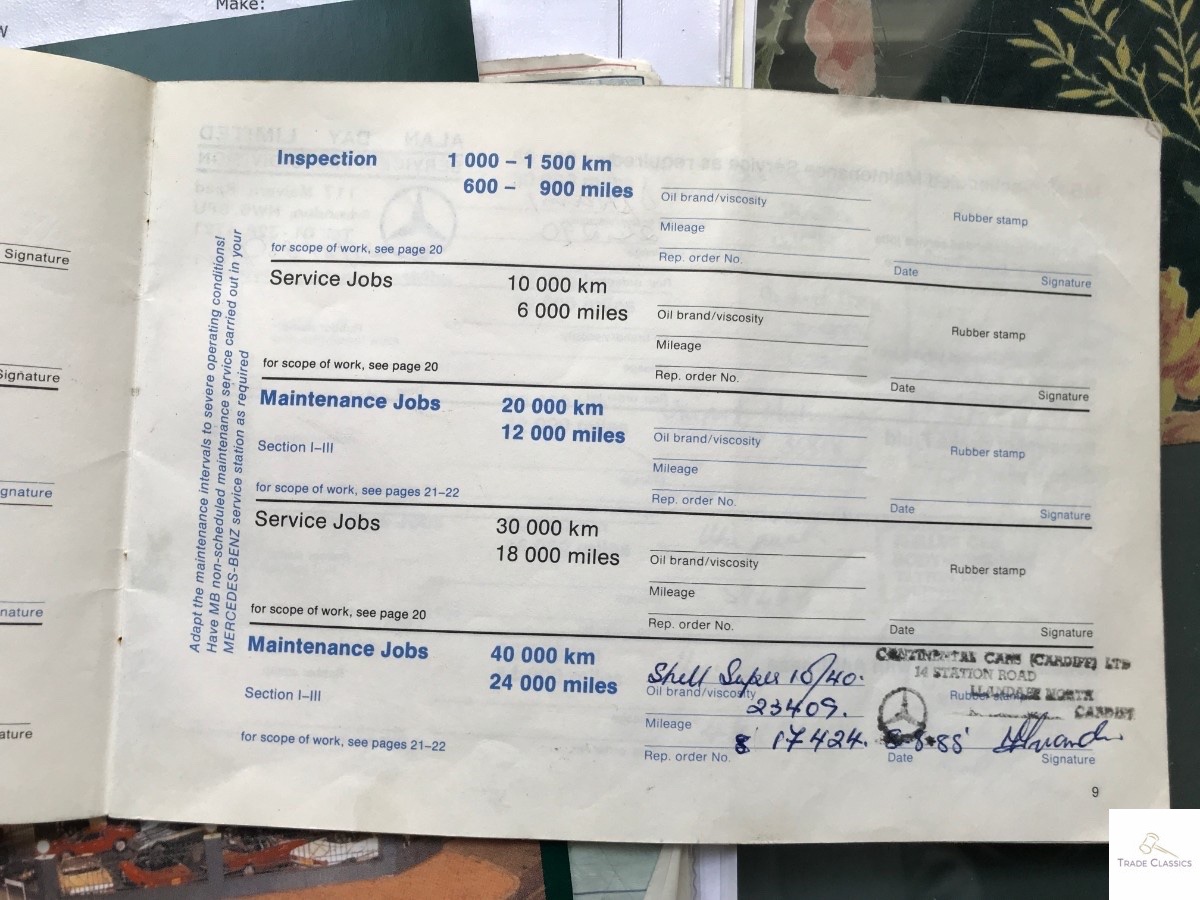 Make:
Signature
Signature
gnature
nature
ature
Adapt the maintenance intervals to severe operating conditions!
Have MB non-scheduled maintenance service carried out in your
MERCEDES-BENZ service station as required
Inspection 1 000 – 1 500 km
600 – 900 miles
Oil brand/viscosity
Mileage
Rep. order No.
Rubber stamp
Date Signature
for scope of work, see page 20
Service Jobs 10 000 km
6 000 miles
Oil brand/viscosity
Mileage
Rep. order No.
Rubber stamp
Date Signature
for scope of work, see page 20
Maintenance Jobs 20 000 km
12 000 miles
Section I–III
Oil brand/viscosity
Mileage
Rep. order No.
Rubber stamp
Date Signature
for scope of work, see pages 21–22
Service Jobs 30 000 km
18 000 miles
Oil brand/viscosity
Mileage
Rep. order No.
Rubber stamp
Date Signature
for scope of work, see page 20
Maintenance Jobs 40 000 km
24 000 miles
Section I–III
Shell Super 10/40.
Oil brand/viscosity
23409.
Mileage
17424.
Rep. order No.
CONTINENTAL CARS (CARDIFF) LTD
14 STATION ROAD
LLANDAFF NORTH
CARDIFF
Date Signature
for scope of work, see pages 21–22
9
TRADE CLASSICS